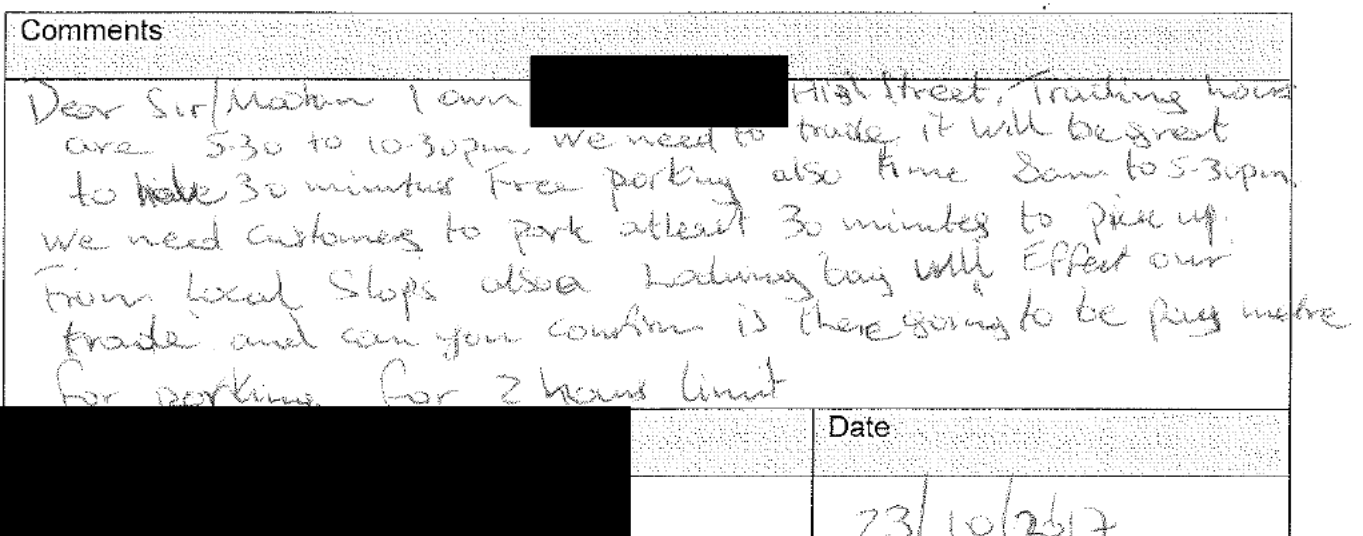 Comments
Dear Sir/Madam I own High Street, Trading hours
are 5-30 to 10-30pm. we need to trade it will be great
to have 30 minutes Free parking also time 8am to 5-30pm.
we need customers to park atleast 30 minutes to pick up
From Local Shops also a Loading bay will Effect our
trade and can you confirm is there going to be pay metre
for parking for 2 hours limit
Date
23/10/2017